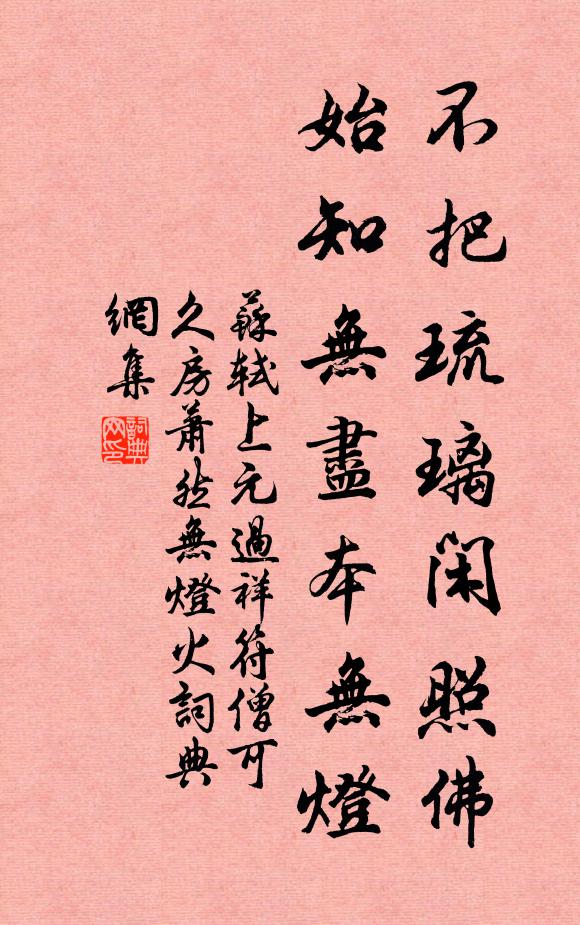 不把琉璃閑照佛
始知無盡本無燈
蘇軾上元過祥符僧可
久房蕭然無燈火詞典
網集
詞典
网印